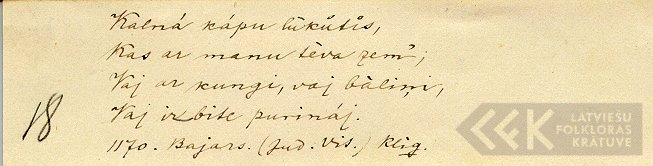 Kalná kápu lūkūtìs,
Kas ar manu tèva zem';
Vaj ar kungi, vaj bàliņi,
Vaj iz bite purináj.
18
1170. Bajars. (Jud. vis.) Klig.
LATVIEŠU
FOLKLORAS
KRĀTUVE